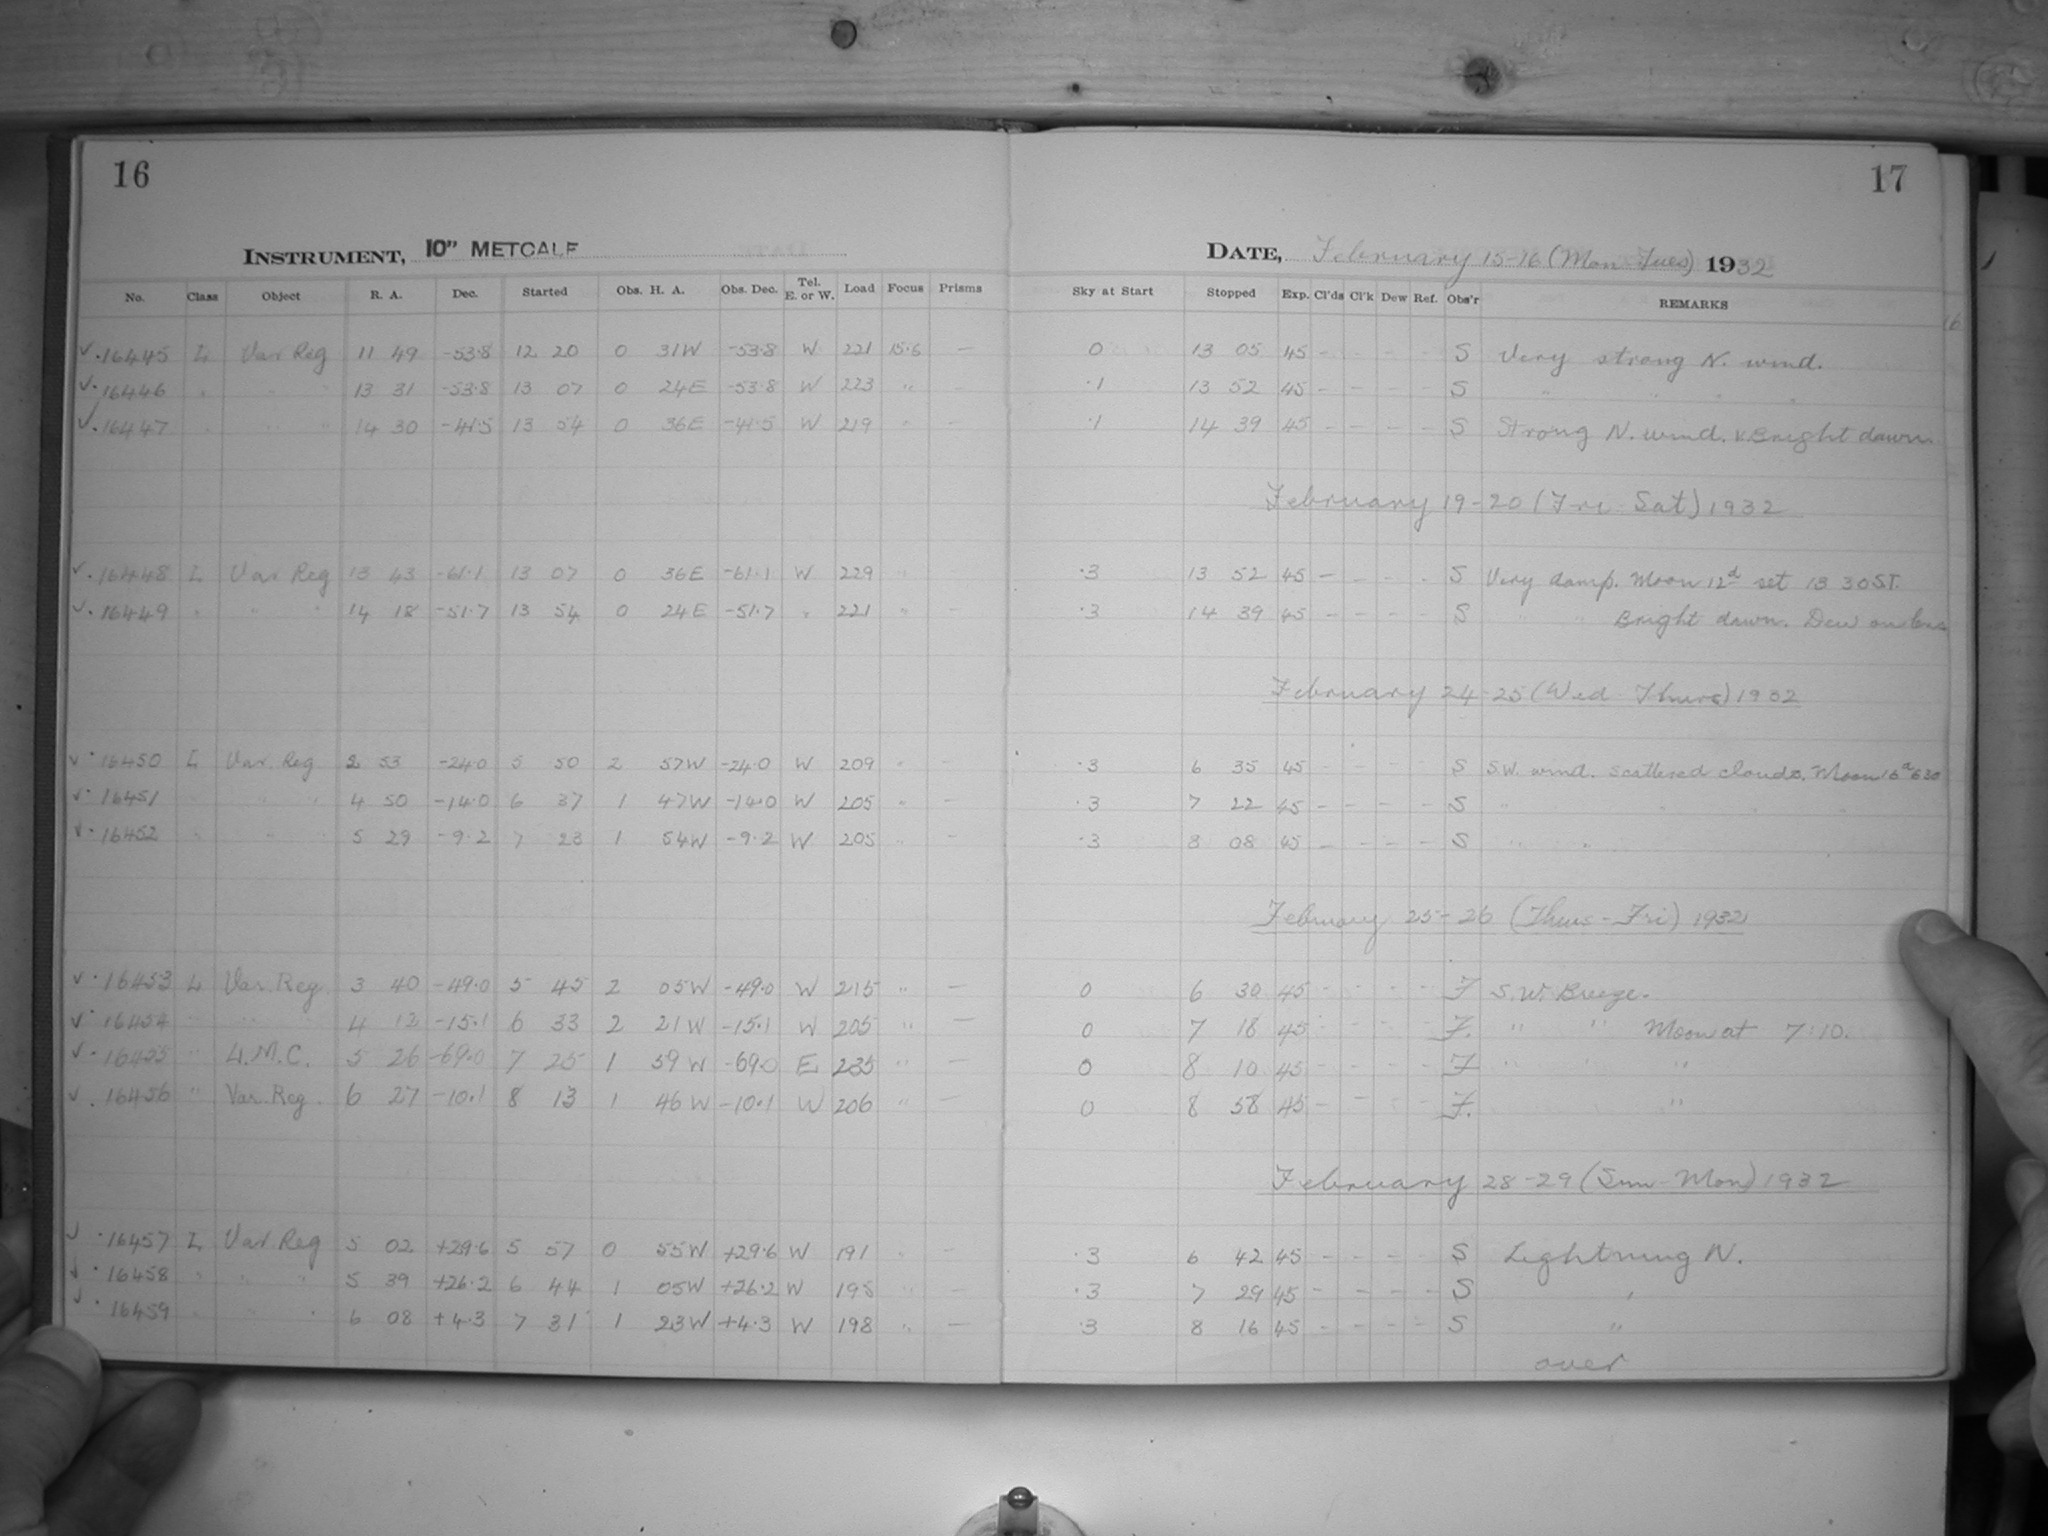 16
INSTRUMENT, 10" METCALF
No. Class Object R. A. Dec. Started Obs. H. A. Obs. Dec. Tel. E. or W. Load Focus Prisms
√ · 16445 L Var Reg 11 49 -53.8 12 20 0 31W -53.8 W 221 15.6 —
√ · 16446 " " " 13 31 -53.8 13 07 0 24E -53.8 W 223 " —
√ · 16447 " " " 14 30 -41.5 13 54 0 36E -41.5 W 219 " —
√ · 16448 L Var Reg 13 43 -61.1 13 07 0 36E -61.1 W 229 "
√ · 16449 " " " 14 18 -51.7 13 54 0 24E -51.7 " 221 " —
√ · 16450 L Var. Reg 2 53 -24.0 5 50 2 57W -24.0 W 209 " —
√ · 16451 " " 4 50 -14.0 6 37 1 47W -14.0 W 205 " —
√ · 16452 " " " 5 29 -9.2 7 23 1 54W -9.2 W 205 " —
√ · 16453 L Var. Reg. 3 40 -49.0 5 45 2 05W -49.0 W 215 " —
√ · 16454 " " 4 12 -15.1 6 33 2 21W -15.1 W 205 " —
√ · 16455 " L.M.C. 5 26 -69.0 7 25 1 59W -69.0 E 235 " —
√ · 16456 " Var. Reg. 6 27 -10.1 8 13 1 46W -10.1 W 206 " —
√ · 16457 L Var Reg 5 02 +29.6 5 57 0 55W +29.6 W 191 " —
√ · 16458 " " " 5 39 +26.2 6 44 1 05W +26.2 W 195 " —
√ · 16459 " " " 6 08 +4.3 7 31 1 23W +4.3 W 198 " —
17
DATE, February 15-16 (Mon-Tues) 1932
Sky at Start Stopped Exp. Cl'ds Cl'k Dew Ref. Obs'r REMARKS
16
0 13 05 45 - - - - S Very strong N. wind.
.1 13 52 45 - - - - S " " " "
.1 14 39 45 - - - - S Strong N. wind. Bright dawn.
February 19-20 (Fri-Sat) 1932
.3 13 52 45 - - - - S Very damp. Moon 12d set 13 30 S.T.
.3 14 39 45 - - - - S " " Bright dawn. Dew on lens
February 24-25 (Wed-Thurs) 1932
.3 6 35 45 - - - - S S.W. wind. scattered clouds. Moon 16d 6 30
.3 7 22 45 - - - - S " " " "
.3 8 08 45 - - - - S " "
February 25-26 (Thurs-Fri) 1932
0 6 30 45 - - - - F S.W. Breeze.
0 7 18 45 - - - - F. " " Moon at 7:10.
0 8 10 45 - - - - F " " "
0 8 58 45 - - - - F. "
February 28-29 (Sun-Mon) 1932
.3 6 42 45 - - - - S Lightning N.
.3 7 29 45 - - - - S "
.3 8 16 45 - - - - S "
over